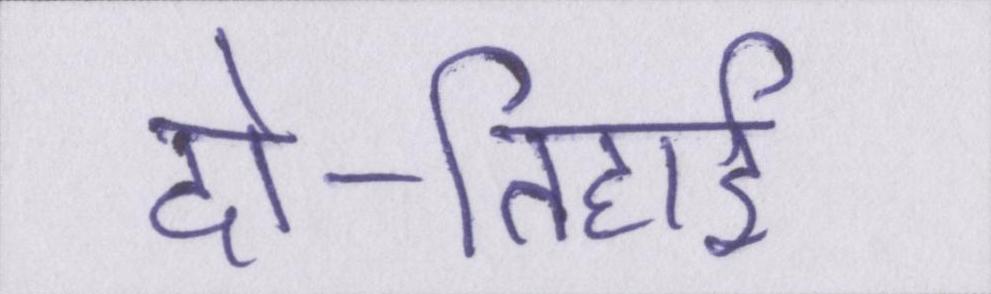 दो-तिहाई